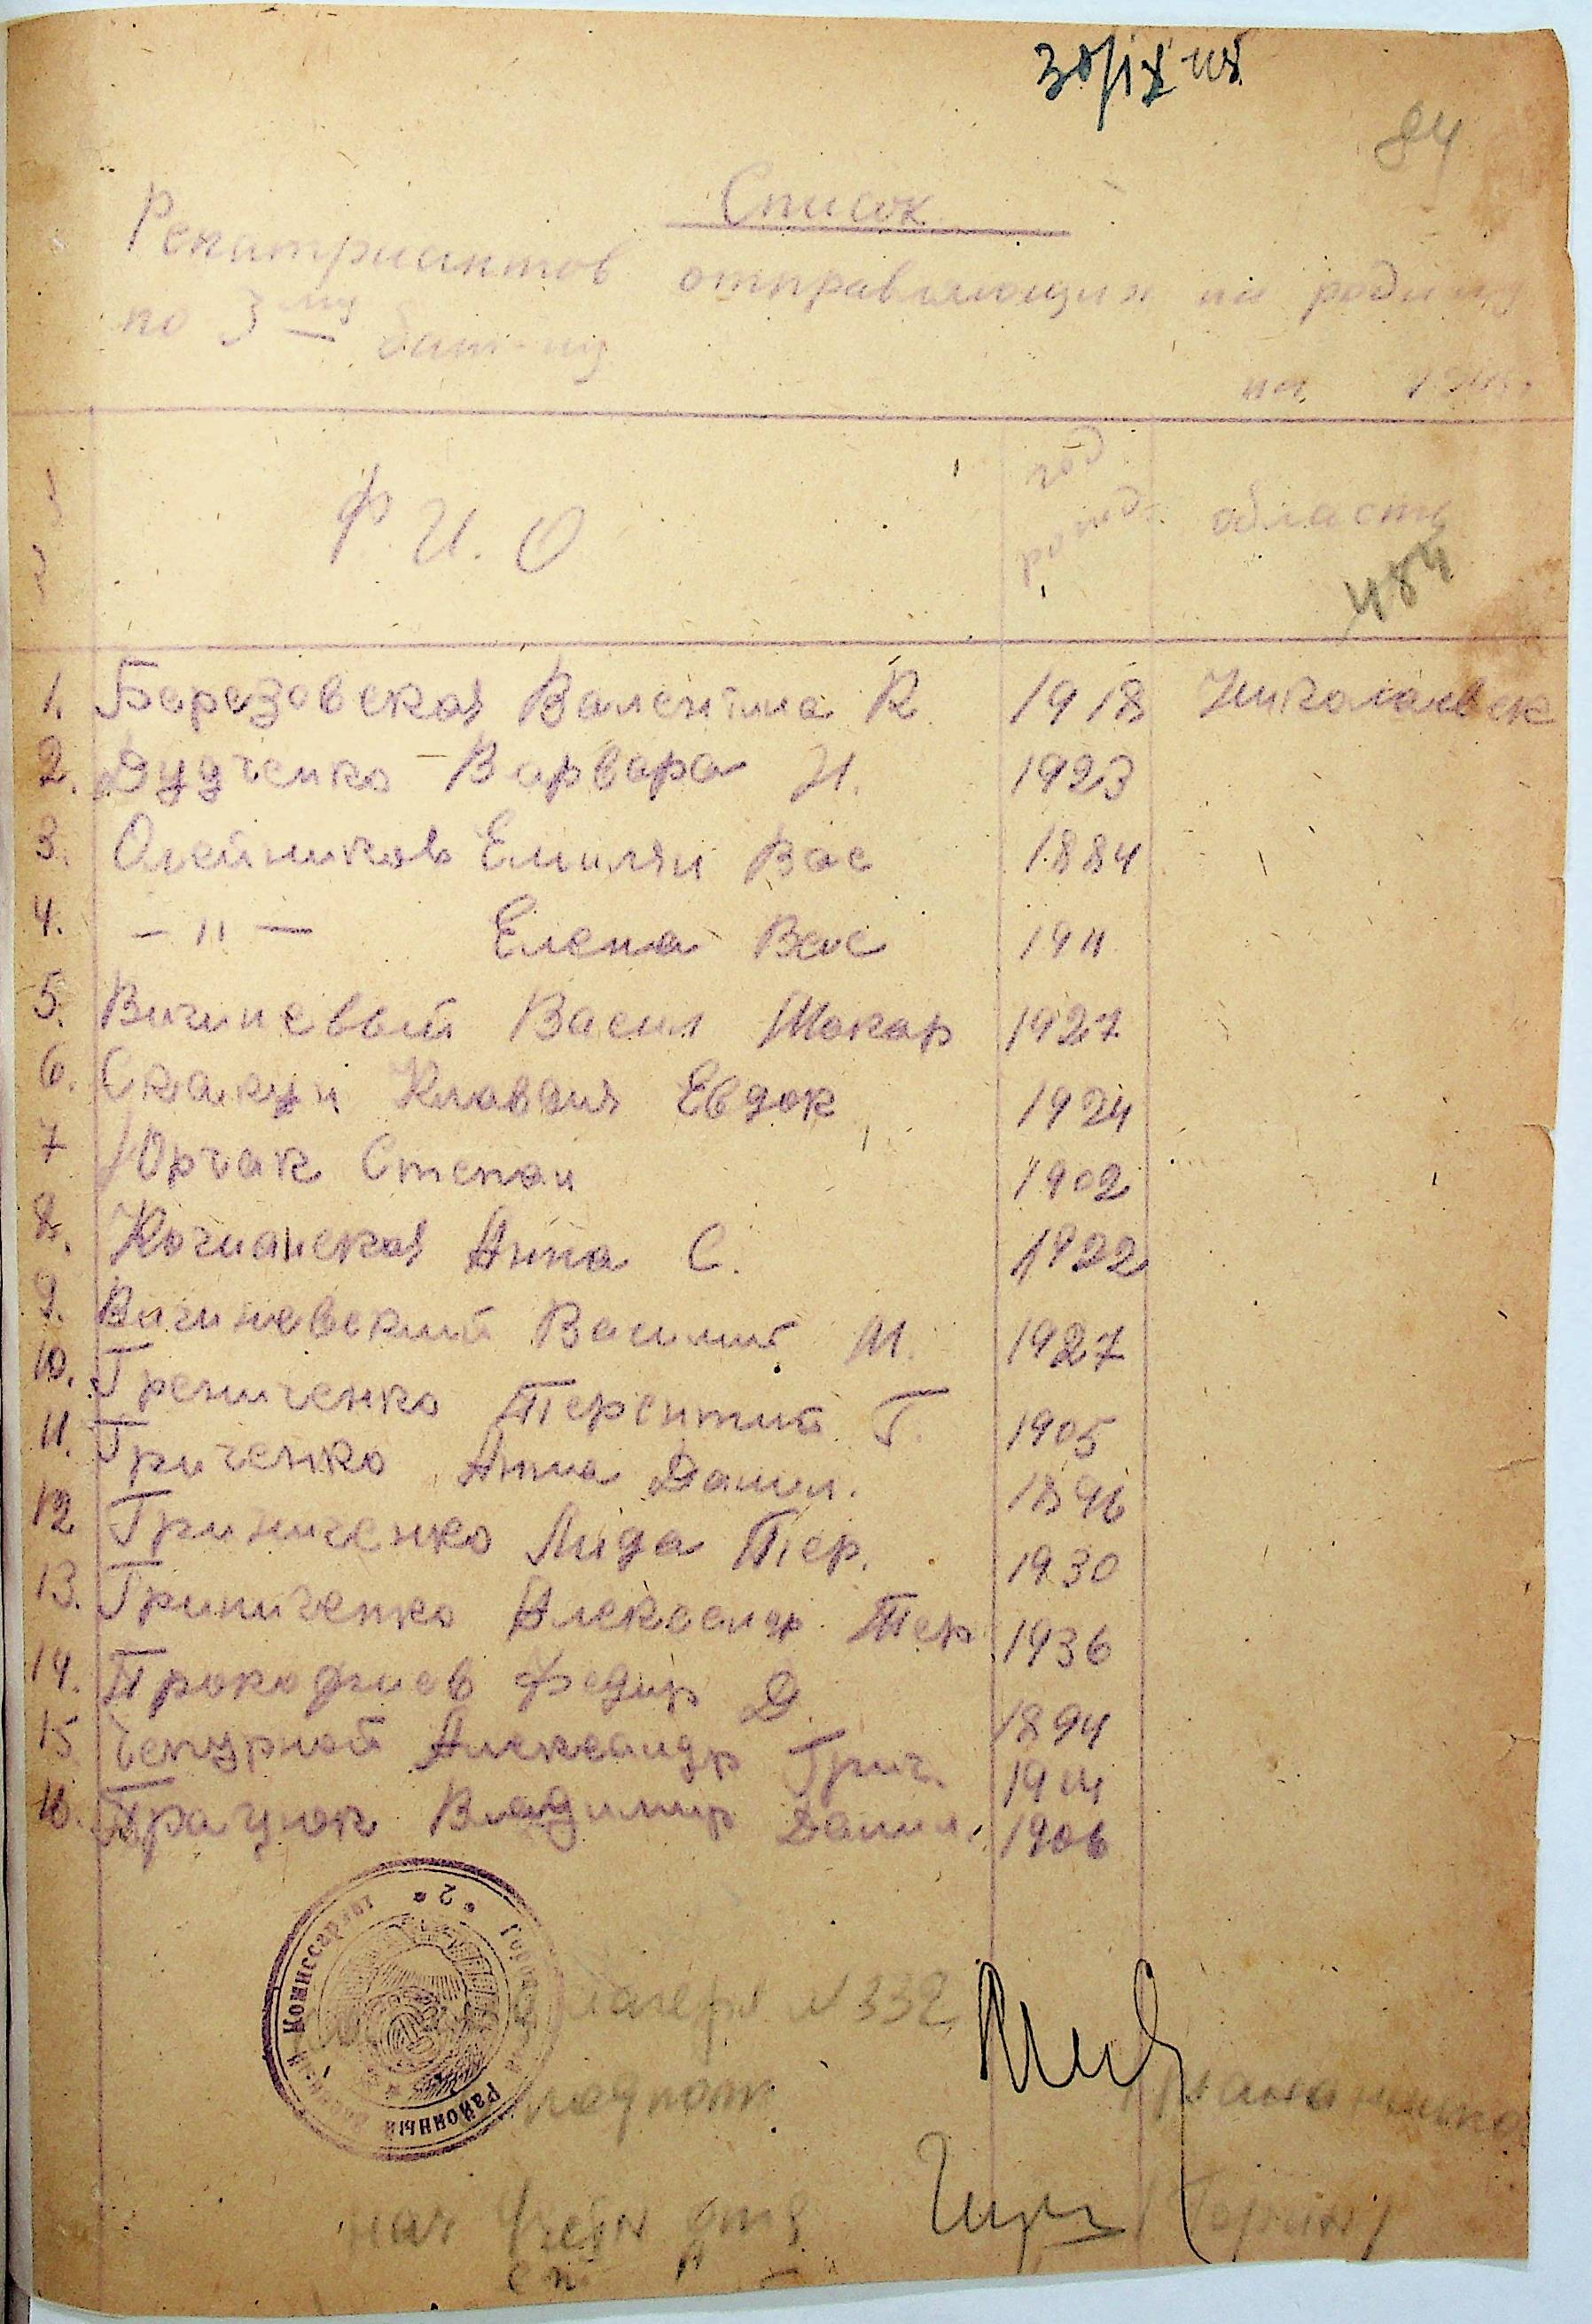 84
Список
Репатриантов отправляющихся на родину
по 3му бат-ну
на 194 г.
Ф. И. О
год рожд.
область
484
1. Березовская Валентина К. 1918 Николаевск
2. Дудченко Варвара И. 1923
3. Олейников Емилян Вас 1884
4. — 〃 — Елена Вас 1911
5. Вичиневый Васил Макар 1927
6. Скакун Клавдия Евдок 1924
7 Юрчак Степан 1902
8. Кочианская Анна С. 1922
9. Вичиневский Василий М. 1927
10. Грениченко Терентий Г. 1905
11. Гриченко Анна Данил. 1896
12 Гриниченко Лида Тер. 1930
13. Гриниченко Александр Тер 1936
14. Прокофиев Федир Д. 1894
15. Чепурной Александр Григ. 1914
16. Трацюк Владимир Данил. 1906
* 2 *
Районный
Комиссариат
лагеря N 332
подполк
нач